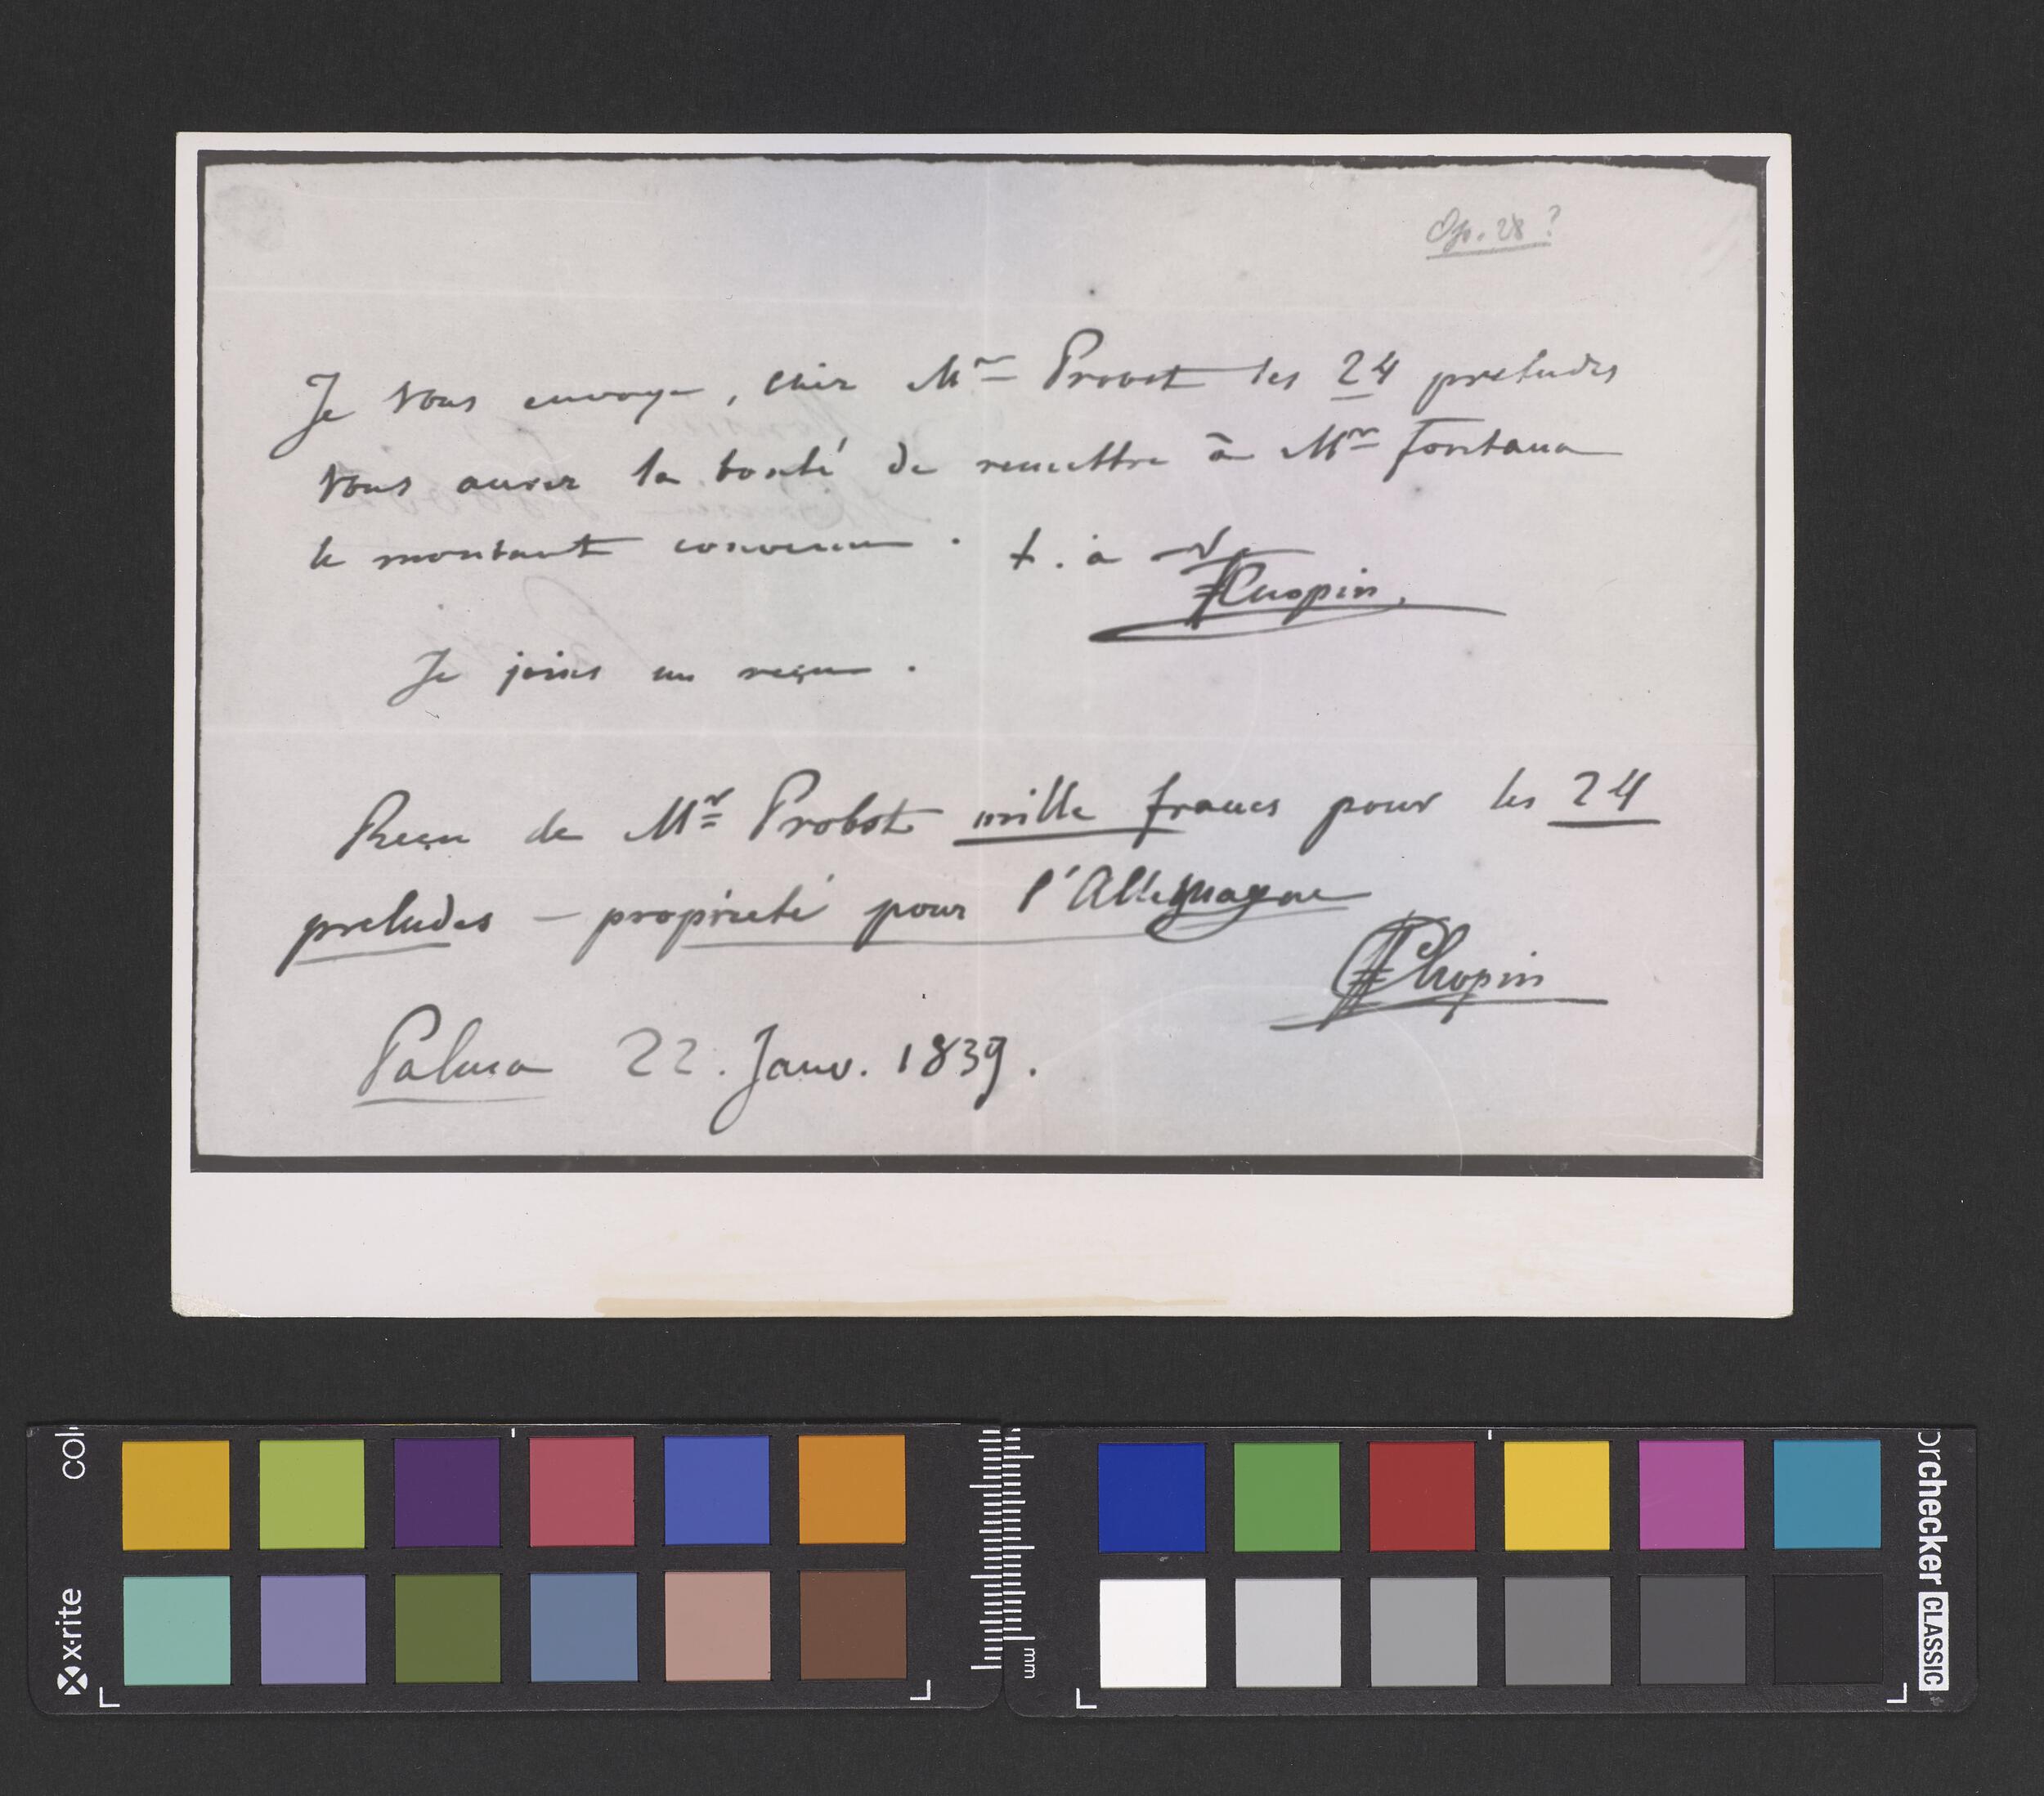 Op. 28?
Je vous envoye, cher Mr Probst les 24 preludes
vous aurez la bonté de remettre à Mr Fontana
le montant convenu. t. à v.
FChopin.
Je joins un reçu.
Reçu de Mr Probst mille francs pour les 24
preludes – proprieté pour l'Allemagne
FChopin
Palma 22. Janv. 1839.
x·rite
mm
colorchecker CLASSIC